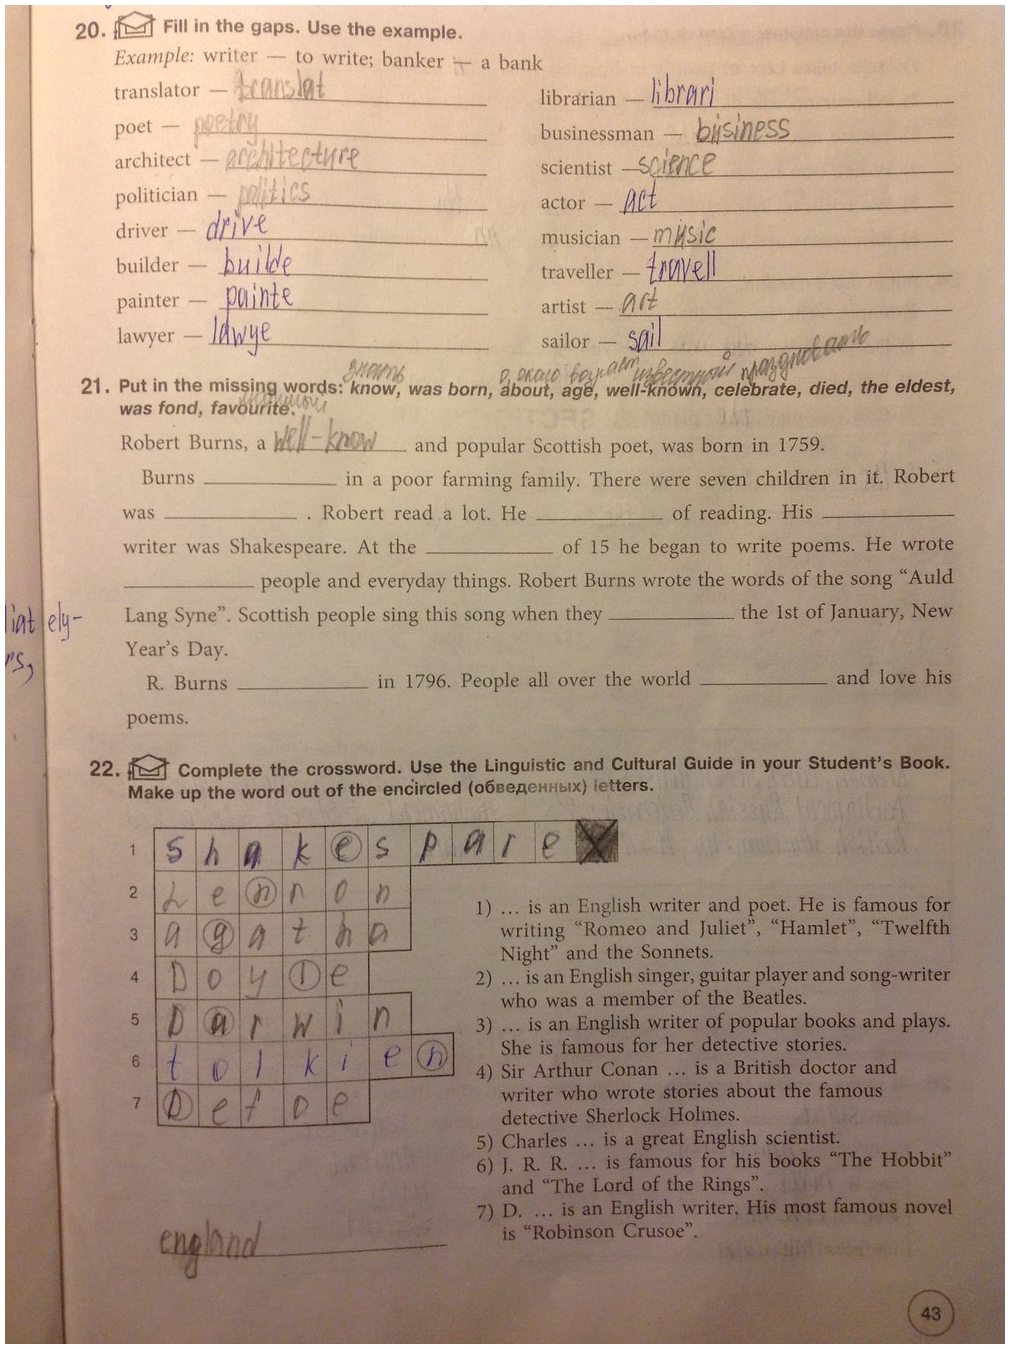 20. Fill in the gaps. Use the example.
Example: writer — to write; banker — a bank
translator — translat
poet — poetry
architect — architecture
politician — politics
driver — drive
builder — builde
painter — painte
lawyer — lawye
librarian — librari
businessman — business
scientist — science
actor — act
musician — music
traveller — travell
artist — art
sailor — sail
знать о, около возраст известный праздновать
21. Put in the missing words: know, was born, about, age, well-known, celebrate, died, the eldest,
was fond, favourite.
Robert Burns, a well-know and popular Scottish poet, was born in 1759.
Burns ____ in a poor farming family. There were seven children in it. Robert
was ____ . Robert read a lot. He ____ of reading. His ____
writer was Shakespeare. At the ____ of 15 he began to write poems. He wrote
____ people and everyday things. Robert Burns wrote the words of the song “Auld
Lang Syne”. Scottish people sing this song when they ____ the 1st of January, New
Year’s Day.
R. Burns ____ in 1796. People all over the world ____ and love his
poems.
22. Complete the crossword. Use the Linguistic and Cultural Guide in your Student’s Book.
Make up the word out of the encircled (обведенных) letters.
1 Shakespare
2 Lennon
3 agatha
4 Doyle
5 Darwin
6 tolkien
7 Defoe
england
1) ... is an English writer and poet. He is famous for
writing “Romeo and Juliet”, “Hamlet”, “Twelfth
Night” and the Sonnets.
2) ... is an English singer, guitar player and song-writer
who was a member of the Beatles.
3) ... is an English writer of popular books and plays.
She is famous for her detective stories.
4) Sir Arthur Conan ... is a British doctor and
writer who wrote stories about the famous
detective Sherlock Holmes.
5) Charles ... is a great English scientist.
6) J. R. R. ... is famous for his books “The Hobbit”
and “The Lord of the Rings”.
7) D. ... is an English writer. His most famous novel
is “Robinson Crusoe”.
43